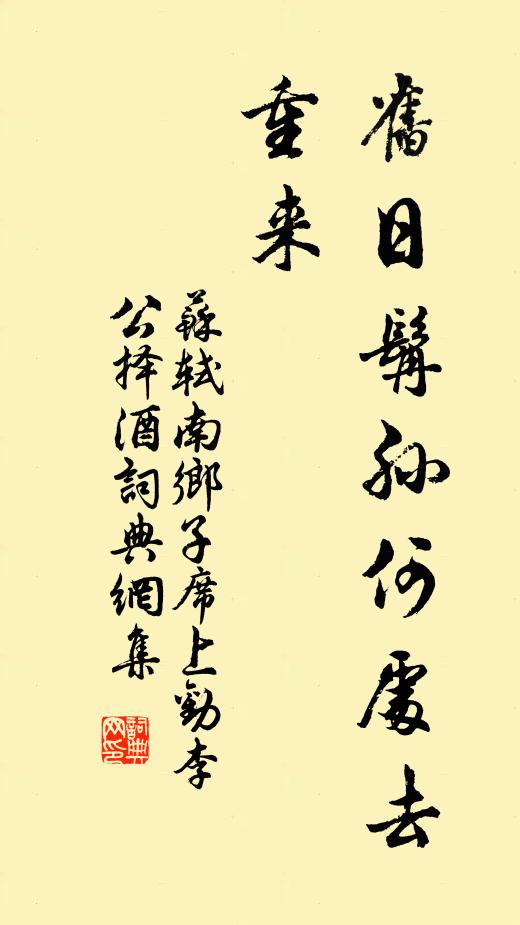 舊日髯孫何處去
重来
蘇軾南鄉子席上勸李
公择酒詞典網集
詞典網印